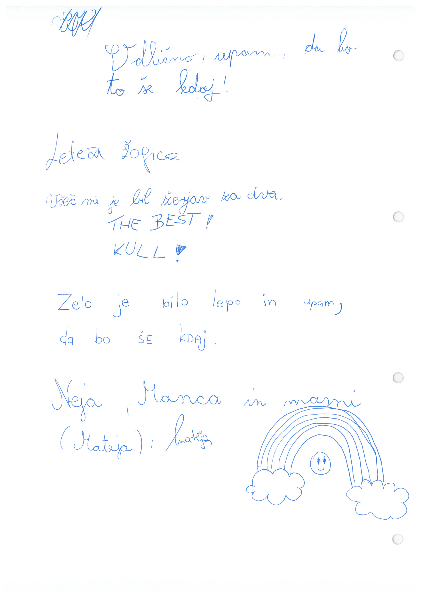 Odlično, upam, da bo
to še kdaj!
Leteča žogica
Všeč mi je bil žerjav za dva.
THE BEST!
KULL!
Zelo je bilo lepo in upam,
da bo ŠE KDAJ.
Neja, Manca in mami
(Mateja):